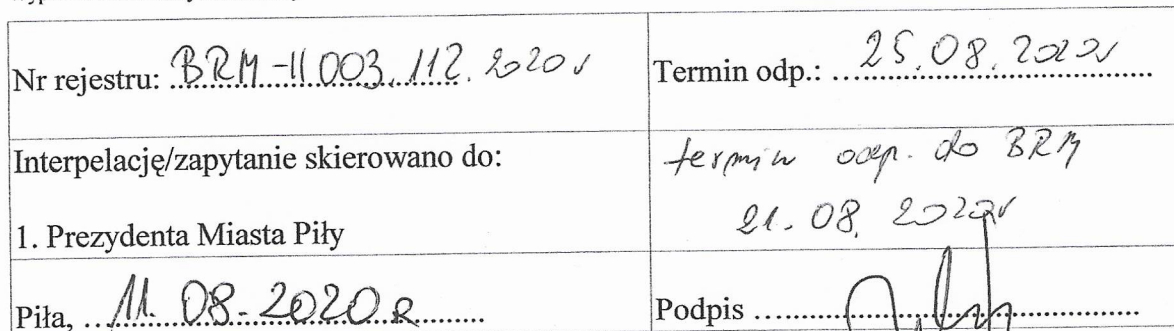 Nr rejestru: BRM-II.003.112.2020r
Termin odp.: 25.08.2020r
Interpelację/zapytanie skierowano do:
1. Prezydenta Miasta Piły
termin odp. do BRM
21.08.2020r
Piła, 11.08.2020 R
Podpis